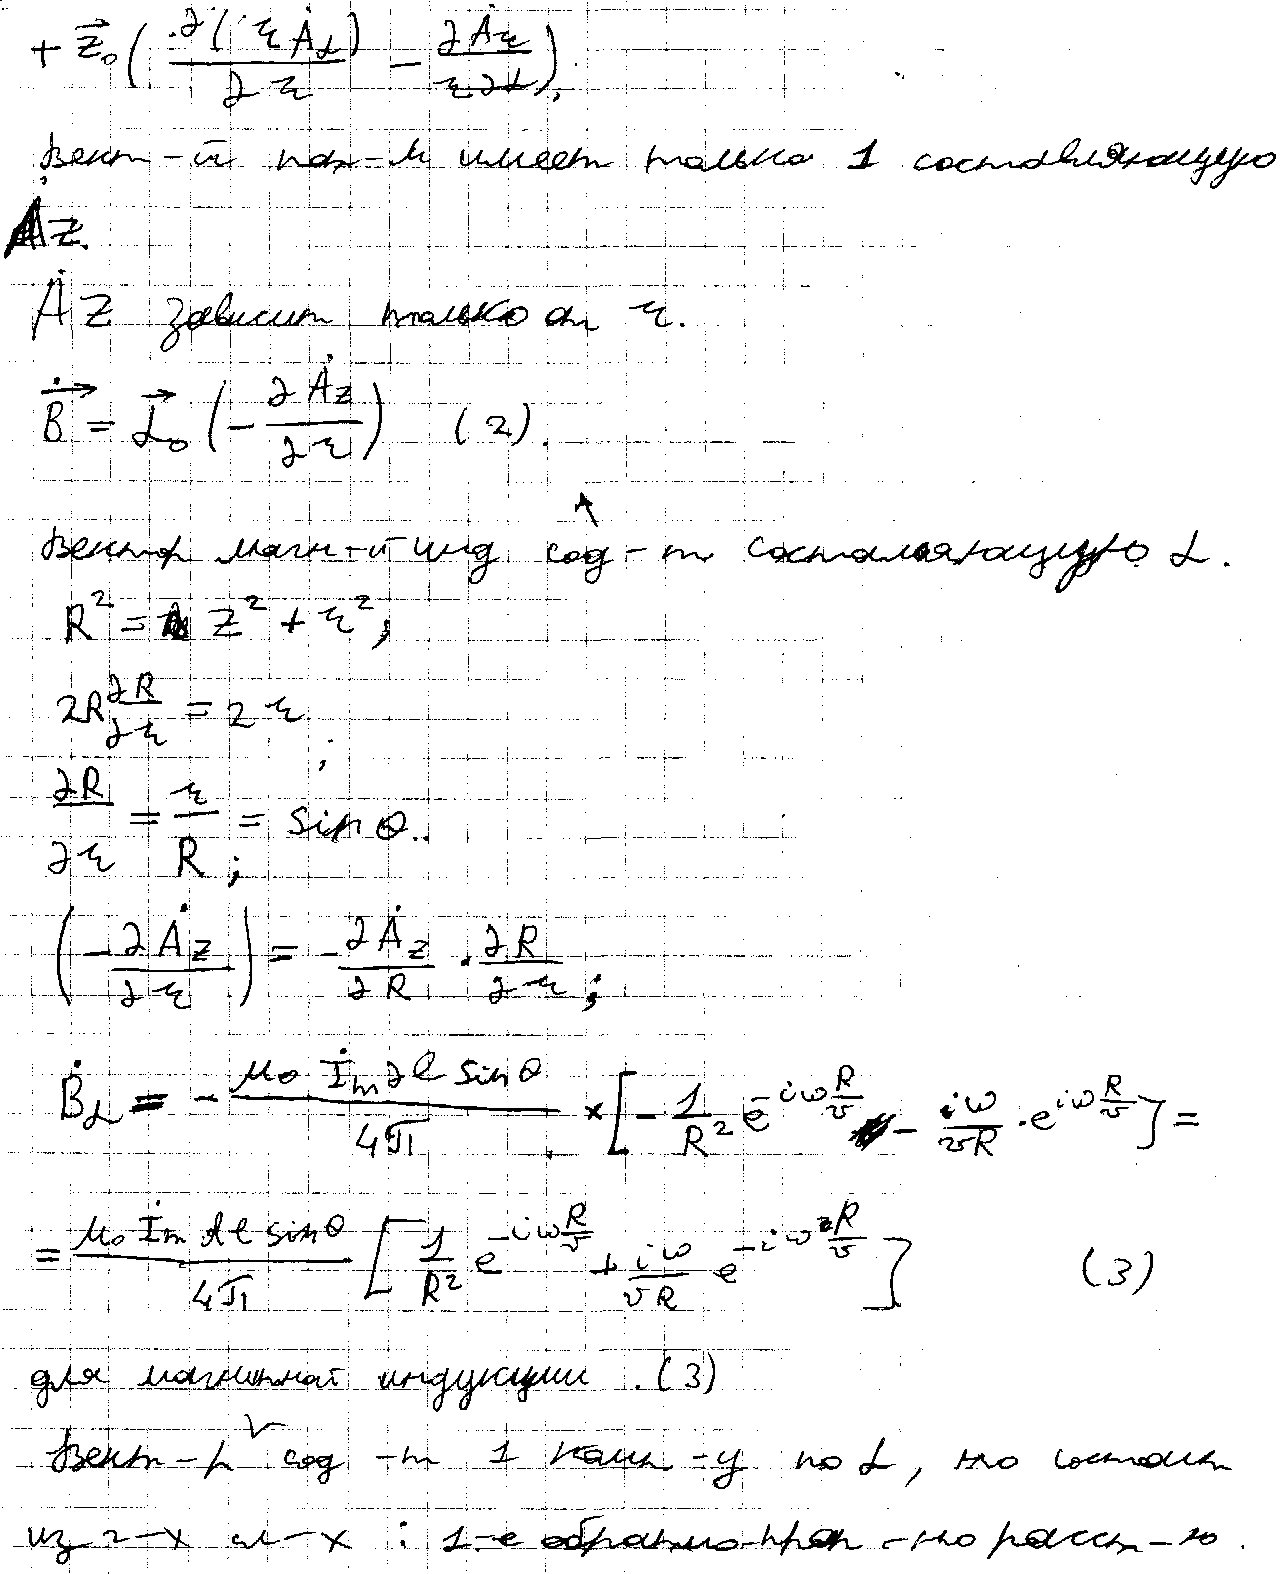 + z⃗₀ ( ∂(r Ȧ_α) / ∂r − ∂Ȧ_r / r∂α ).
Вект-й пот-л имеет только 1 составляющую
Ȧz.
Ȧz зависит только от r.
B⃗̇ = α⃗₀ ( − ∂Ȧ_z / ∂r ) (2).
Вектор магн-й инд сод-т составляющую α.
R² = z² + r²;
2R ∂R/∂r = 2r;
∂R/∂r = r/R = sin θ..;
( − ∂Ȧ_z / ∂r ) = − ∂Ȧ_z / ∂R · ∂R / ∂r ;
Ḃ_α = − μ₀ İ_m ∂ℓ sin θ / 4π × [ − 1/R² e^{−iω R/v} − iω/vR · e^{iω R/v} ] =
= μ₀ İ_m dℓ sin θ / 4π [ 1/R² e^{−iω R/v} + iω/vR e^{−iω R/v} ] (3)
для магнитной индукции . (3)
Вект-р сод-т 1 комп-у по α, но состоит
из 2-х сл-х : 1-е обратно-проп-но расст-ю.